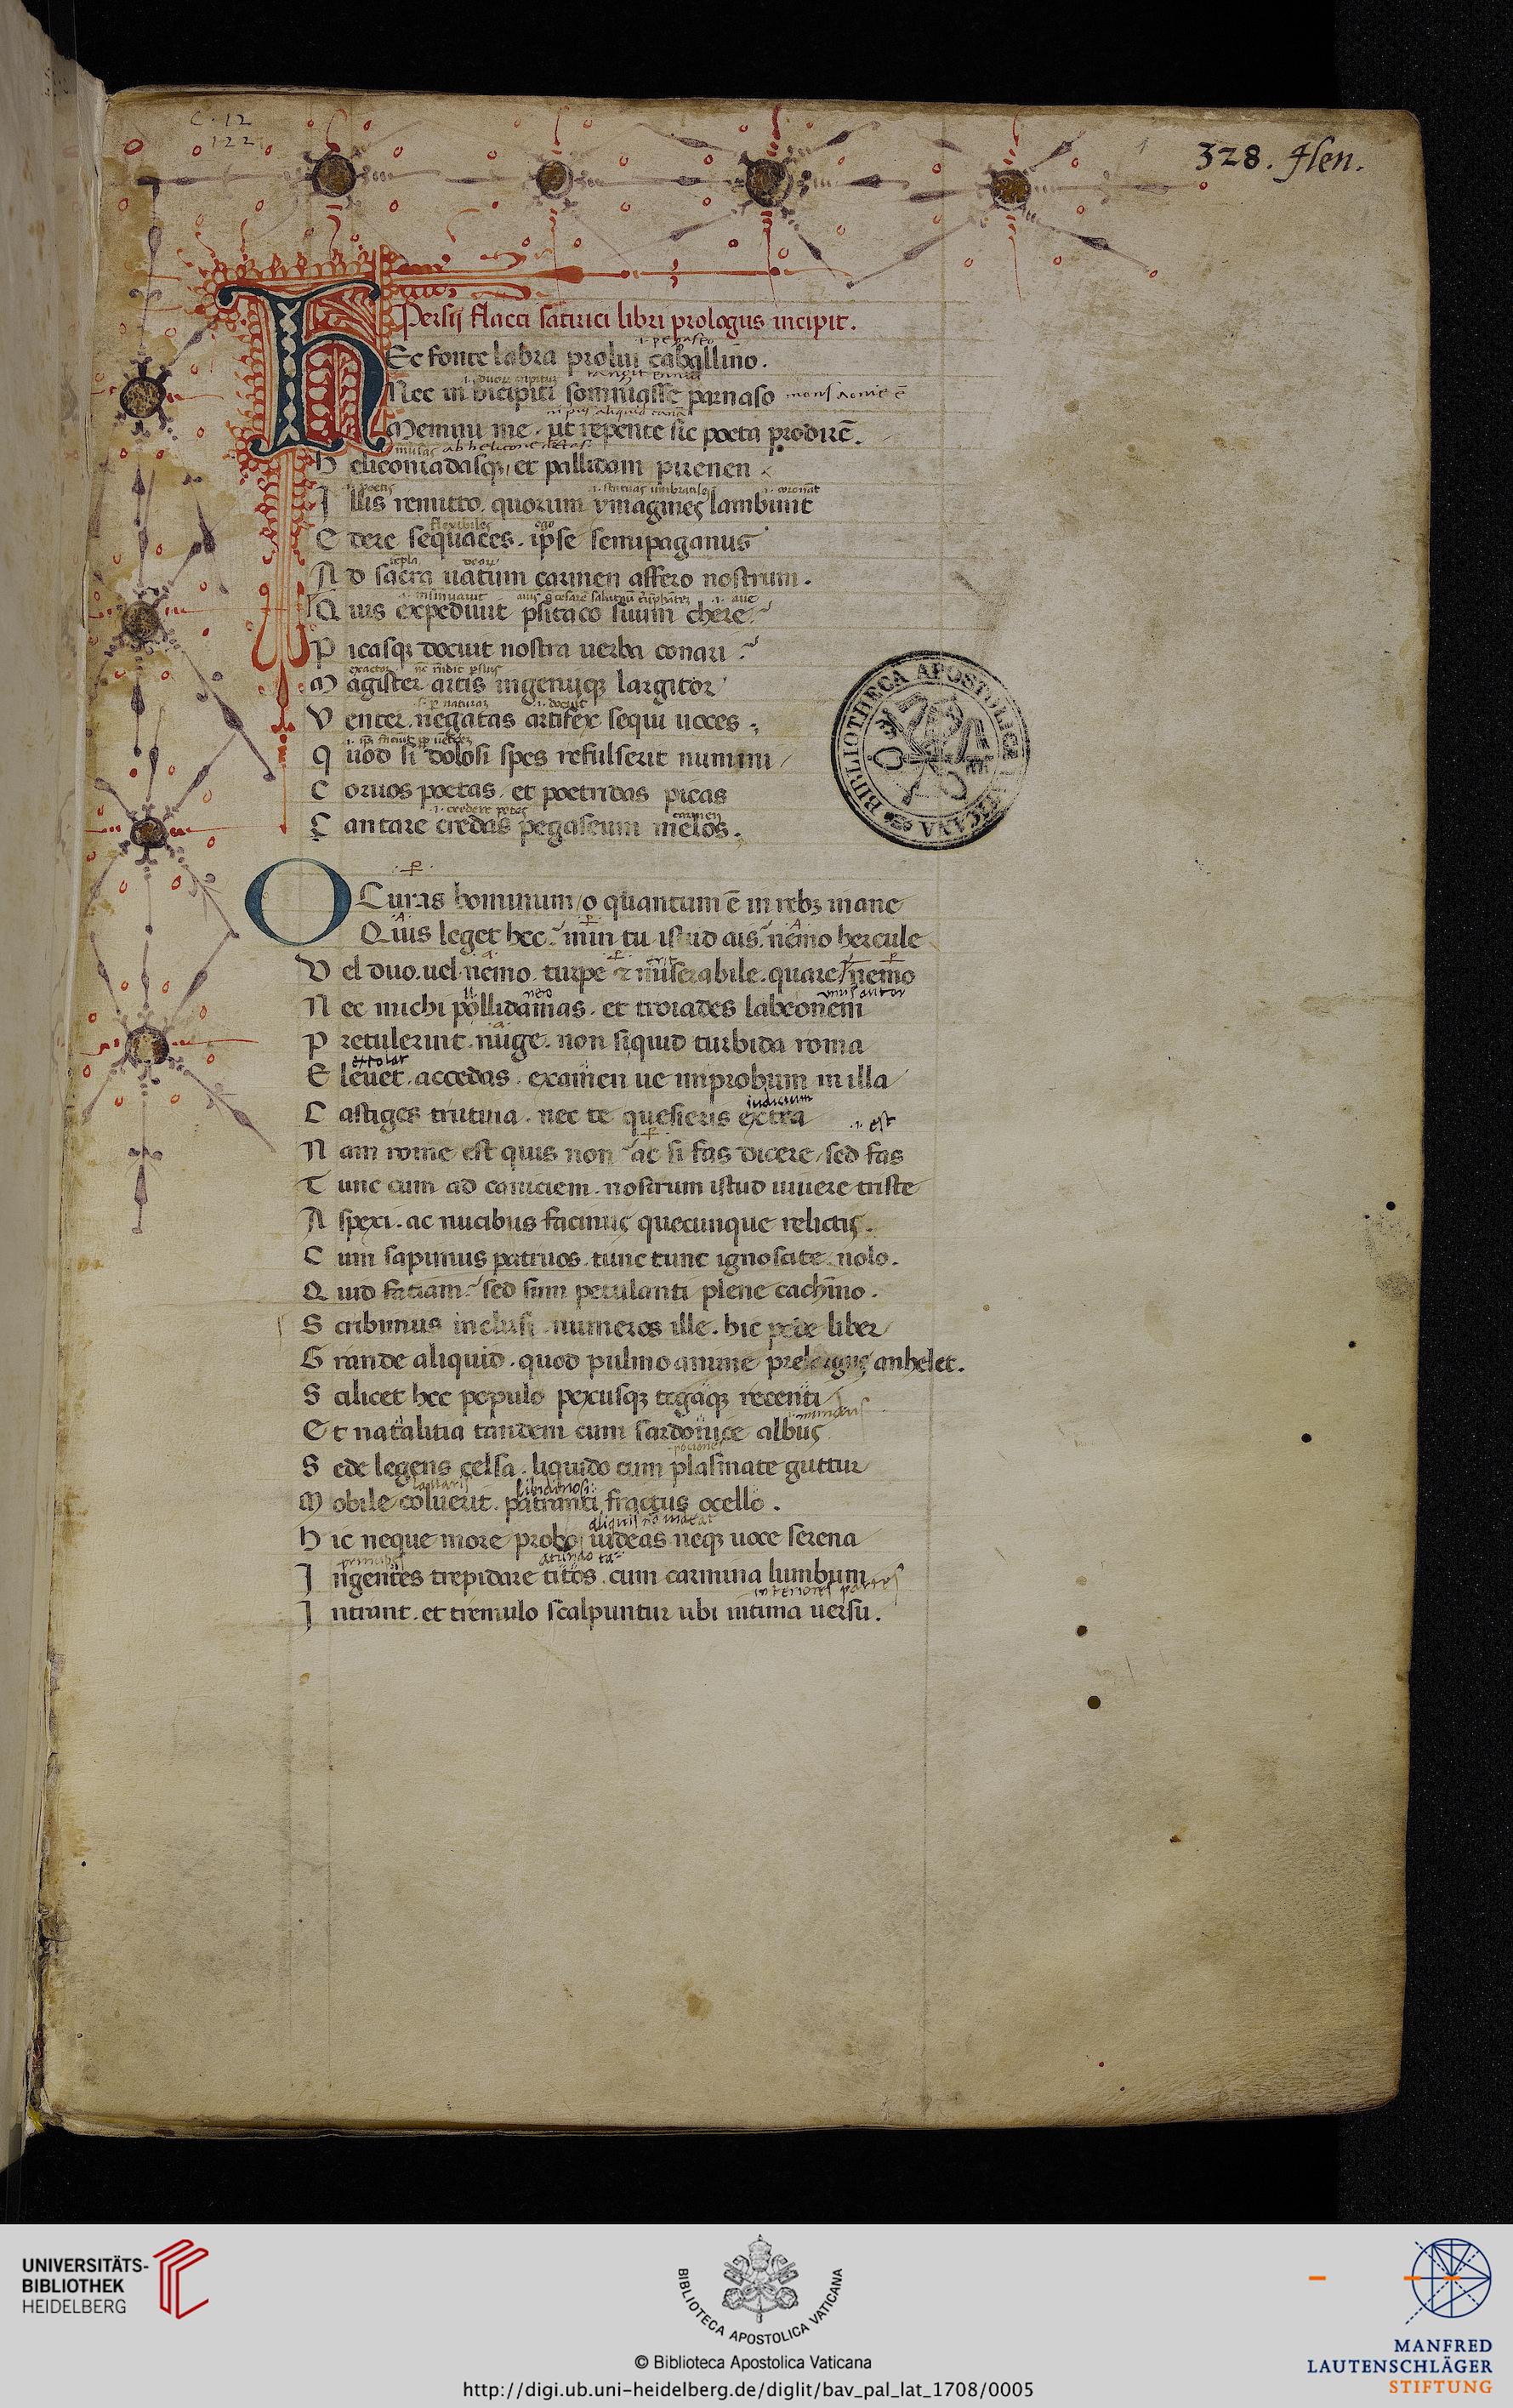 C. 12
122
328. Hen.
Persij flacci satirici libri prologus incipit.
.i. pegaseo
NEc fonte labra prolui caballino.
Nec in bicipiti somniasse parnaso
Memini me. ut repente sic poeta prodirē.
musas ab helicone dctas
h eliconiadasq; et pallidam pirenen
.i. poetis .i. coronāt
I llis remitto. quorum ymagines lambunt
flexibiles ego
E dere sequaces. ipse semipaganus
templa
A d sacra uatum carmen affero nostrum.
.i. aue
Q uis expediuit psitaco suum chere?
P icasq; docuit nostra uerba conari?
M agister artis ingenijq; largitor
.i. docuit
V enter. negatas artifex sequi uoces.
Q uod si dolosi spes refulserit nummi
C oruos poetas. et poetridas picas
carmen
C antare credas pegaseum melos.
O Curas hominum / o quantum ē in rebz inane
Quis leget hec? min tu istud ais? nemo hercule
V el duo. uel nemo. turpe & miserabile. quare? nemo
nero
N ec michi pollidamas. et troiades labeonem
P retulerint. nuge. non siquid turbida roma
extolat
E leuet. accedas. examen ue improbum in illa
iudicium
C astiges trutina. nec te quesieris extra
.i. est
N am rome est quis non? ac si fas dicere / sed fas
T unc cum ad caniciem. nostrum istud uiuere triste
A spexi. ac nucibus facimus quecunque relictis.
C um sapimus patruos. tunc tunc ignoscite. nolo.
Q uid faciam? sed sum petulanti plene cachīno.
S cribimus inclusi. numeros ille. hic pede liber
G rande aliquid. quod pulmo anime prelargus anhelet.
S cilicet hec populo pexusq; togaq; recenti
E t natalitia tandem cum sardonice albus
S ede legens celsa. liquido cum plasmate guttur
libidinosi
M obile coluerit. patranti fractus ocello.
h ic neque more probo uideas neq; uoce serena
I ngentes trepidare titos. cum carmina lumbum
interiores partes
I ntrant. et tremulo scalpuntur ubi intima uersu.
BIBLIOTHECA APOSTOLICA VATICANA
UNIVERSITÄTS-
BIBLIOTHEK
HEIDELBERG
BIBLIOTECA APOSTOLICA VATICANA
© Biblioteca Apostolica Vaticana
http://digi.ub.uni-heidelberg.de/diglit/bav_pal_lat_1708/0005
MANFRED
LAUTENSCHLÄGER
STIFTUNG